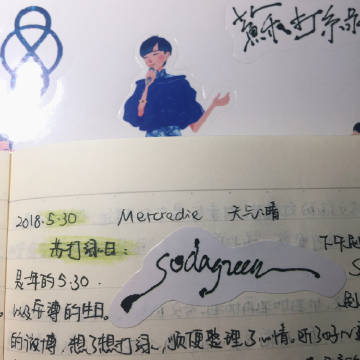 蘇打綠
2018.5.30 Mercredie 天气:晴
苏打绿日:
sodagreen
下午
是一年的5.30.
以及专博的生日。
的微博,想了想打绿,顺便整理了心情。听了